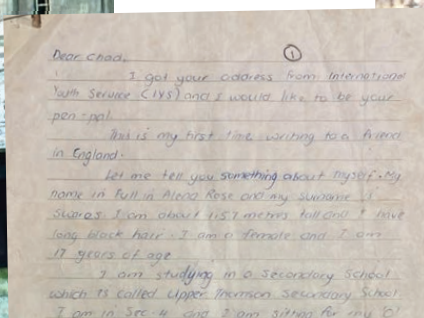 Dear Chad, 1
I got your address from International
Youth Service (IYS) and I would like to be your
pen-pal.
This is my first time writing to a friend
in England.
Let me tell you something about myself. My
name in full is Rose and my surname is
I am about 1.57 metres tall and I have
long black hair. I am a female and I am
17 years of age
I am studying in a Secondary School
which is called Upper Thomson Secondary School
I am in Sec 4 and I am sitting for my 'O'